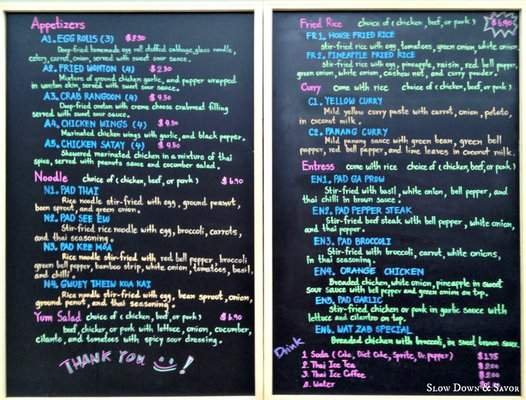 Appetizers
A1. EGG ROLLS (3) $3.50
Deep-fried homemade egg roll stuffed cabbage, glass noodle,
celery, carrot, onion, served with sweet sour sauce.
A2. FRIED WONTON (4)
Mixture of ground chicken garlic, and pepper wrapped
in wonton skin, served with sweet sour sauce.
A3. CRAB RANGOON (4)
Deep-fried wonton with creme cheese crabmeat filling
served with sweet sour sauce.
A4. CHICKEN WINGS (4)
Marinated chicken wings with garlic, and black pepper.
A5. CHICKEN SATAY (4)
Skewered marinated chicken in a mixture of thai
spice, served with peanuts sauce and cucumber salad.
Noodle choice of (chicken, beef, or pork) $6.90
N1. PAD THAI
Rice noodle stir-fried with egg, ground peanut,
bean sprout, and green onion.
N2. PAD SEE EW
Stir-fried rice noodle with egg, broccoli, carrots,
and thai seasoning.
N3. PAD KEE MOA
Rice noodle stir-fried with red bell pepper, broccoli
green bell pepper, bamboo strip, white onion, tomatoes, basil,
and chilli.
N4. GWUEY THEIW KOA KAI
Rice noodle stir-fried with egg, bean sprout, onion,
ground peanut, and thai seasoning.
Yum Salad choice of (chicken, beef, or pork) $6.90
beef, chicken, or pork with lettuce, onion, cucumber,
cilanto, and tomatoes with spicy sour dressing.
THANK YOU !
Fried Rice choice of (chicken, beef, or pork) $6.90
FR1. HOUSE FRIED RICE
Stir-fried rice with egg, tomatoes, green onion, white onion.
FR2. PINEAPPLE FRIED RICE
Stir-fried rice with egg, pineapple, raisin, red bell pepper,
green onion, white onion, cashew nut, and curry powder.
Curry come with rice choice of (chicken, beef, or pork)
C1. YELLOW CURRY
Mild yellow curry paste with carrot, onion, potato,
in coconut milk.
C2. PANANG CURRY
Mild panang sauce with green bean, green bell
pepper, red bell pepper, and lime leaves in coconut milk.
Entress come with rice choice of (chicken, beef, or pork)
EN1. PAD GA PROW
Stir-fried with basil, white onion, bell pepper, and
thai chilli in brown sauce.
EN2. PAD PEPPER STEAK
Stir-fried beef steak with bell pepper, white onion,
and thai pepper.
EN3. PAD BROCCOLI
Stir-fried with broccoli, carrot, white onions,
in thai seasoning.
EN4. ORANGE CHICKEN
Breaded chicken, white onion, pineapple in sweet
sour sauce with bell pepper and green onion on top.
EN5. PAD GARLIC
Stir-fried chicken or pork in garlic sauce with
lettuce and cilantro on top.
EN6. WAT ZAB SPECIAL
Breaded chicken with broccoli, in sweet brown sauce.
Drink
1. Soda (Coke, Diet Coke, Sprite, Dr. pepper) $1.75
2. Thai Ice Tea $2.00
3. Thai Ice Coffee $2.00
4. Water
SLOW DOWN & SAVOR